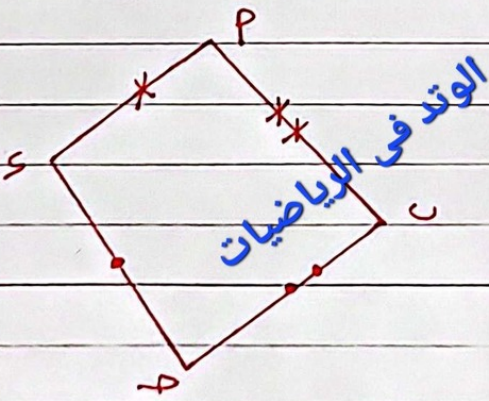 أ
الوتد فى الرياضيات
د
ب
ج